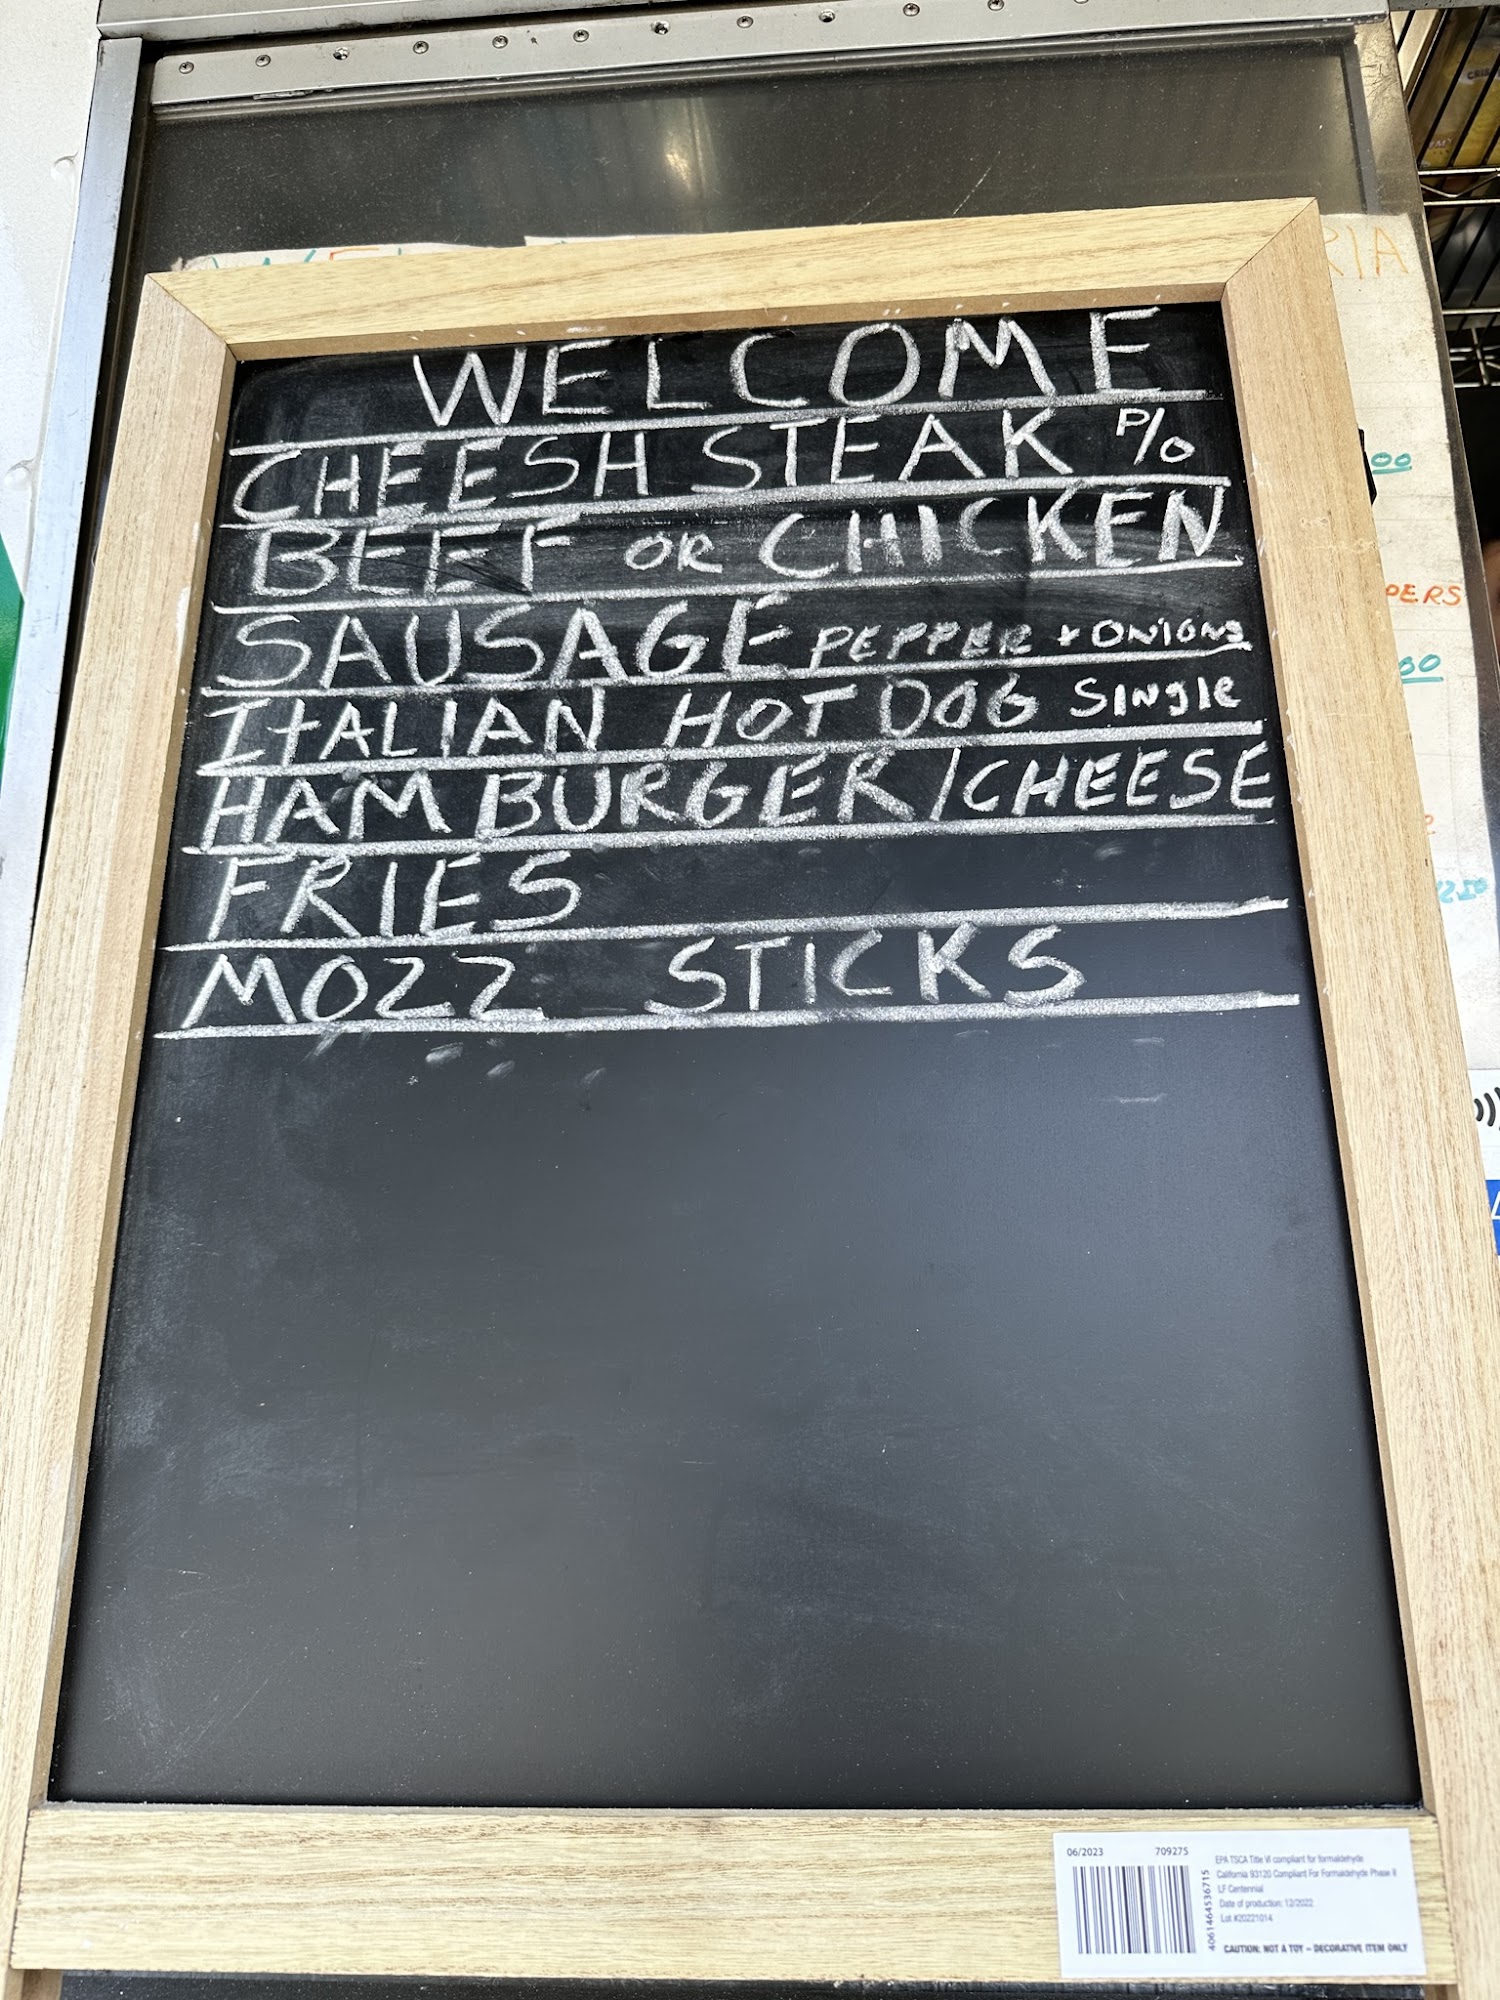 WELCOME
CHEESH STEAK P/O
BEEF OR CHICKEN
SAUSAGE PEPPER + ONIONS
ITALIAN HOT DOG SINglE
HAMBURGER/CHEESE
FRIES
MOZZ STICKS
RIA
00
PERS
00
06/2023 709275
4061464536715
EPA TSCA Title VI compliant for formaldehyde
California 93120 Compliant For Formaldehyde Phase II
LF Centennial
Date of production: 12/2022
Lot #20221014
CAUTION: NOT A TOY – DECORATIVE ITEM ONLY